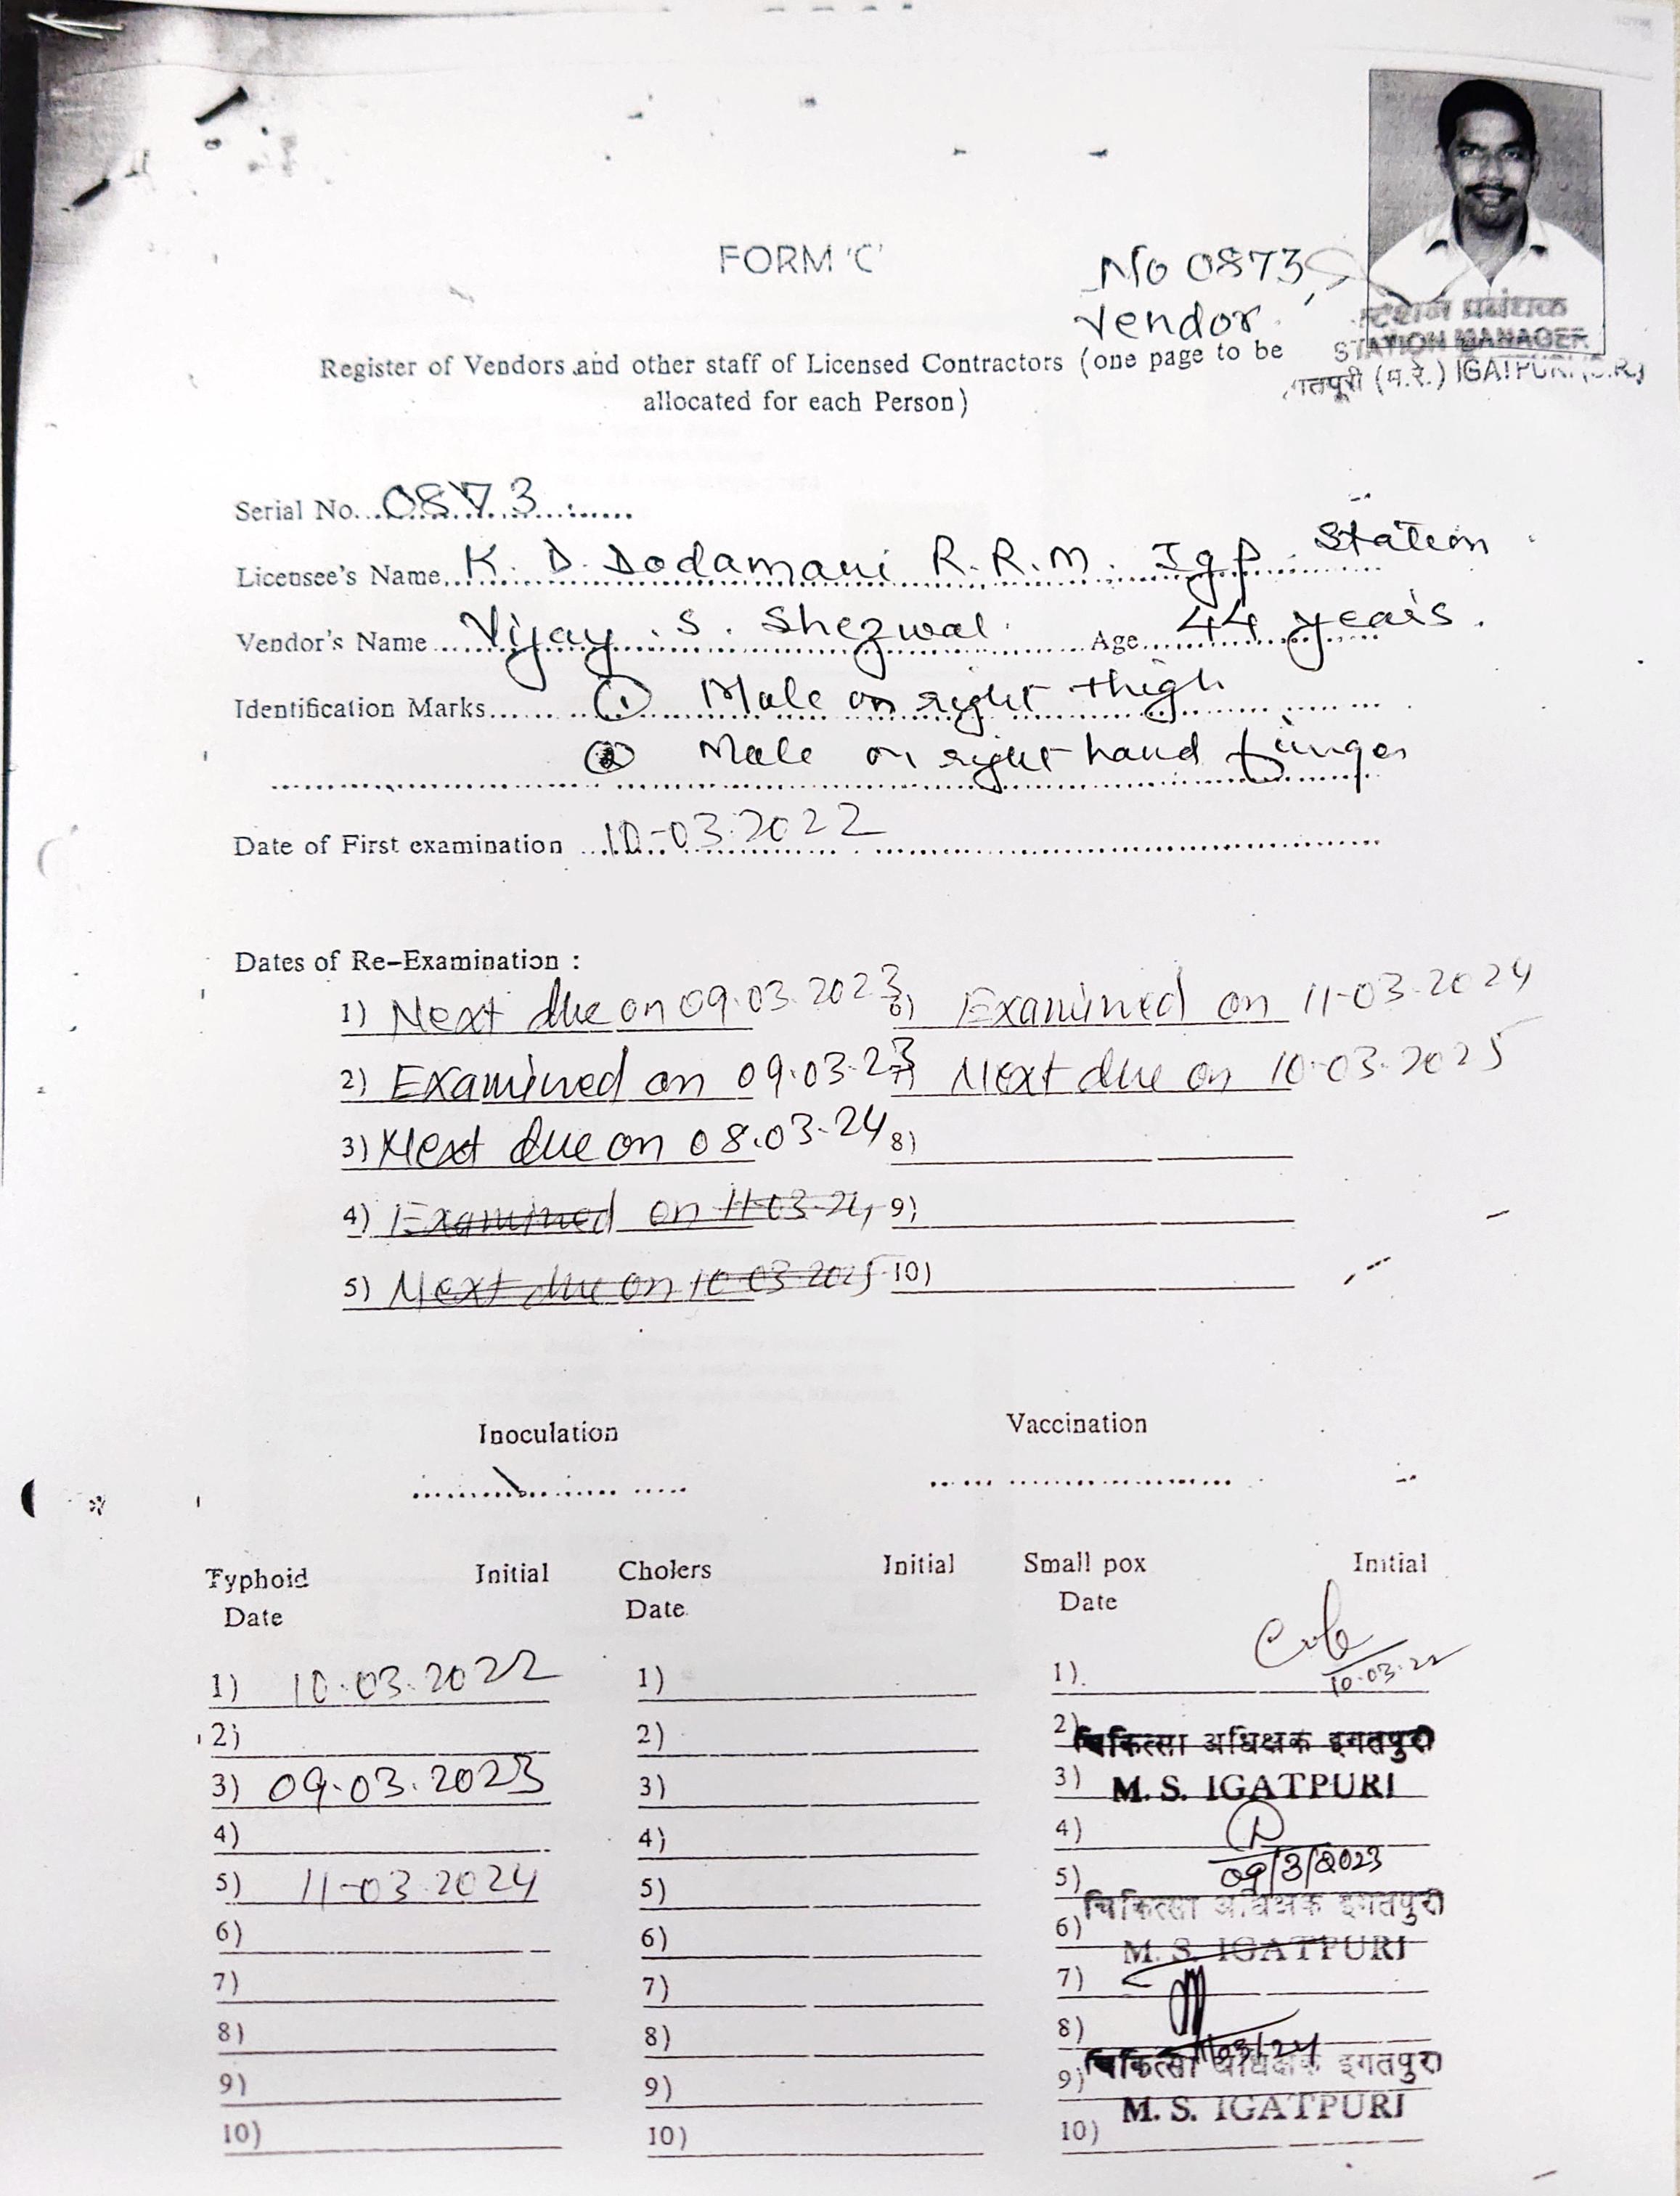 FORM 'C'
No 0873
Vendor
स्टेशन प्रबंधक
STATION MANAGER
इगतपूरी (म.रे.) IGATPURI (C.R.)
Register of Vendors and other staff of Licensed Contractors (one page to be
allocated for each Person)
Serial No. 0873
Licensee's Name K. D. Dodamani R.R.M. Igp. Station
Vendor's Name Vijay . S. Shezwal. Age 44 years.
Identification Marks ① Mole on right thigh
② Mole on right hand finger
Date of First examination 10-03-2022
Dates of Re-Examination :
1) Next due on 09.03.2023 6) Examined on 11-03-2024
2) Examined on 09.03.23 7) Next due on 10-03-2025
3) Next due on 08.03-24 8)
4) Examined on 11-03-24 9)
5) Next due on 10-03-2025 10)
Inoculation Vaccination
Typhoid Initial Cholers Initial Small pox Initial
Date Date. Date
1) 10.03.2022 1) 1). 10.03.22
2) 2) 2) चिकित्सा अधिक्षक इगतपुरी
3) 09.03.2023 3) 3) M. S. IGATPURI
4) 4) 4)
5) 11-03-2024 5) 5) 09/3/2023
चिकित्सा अधिक्षक इगतपुरी
6) 6) 6) M. S. IGATPURI
7) 7) 7)
8) 8) 8) 11/03/24
9) 9) 9) चिकित्सा अधिक्षक इगतपुरी
M. S. IGATPURI
10) 10) 10)